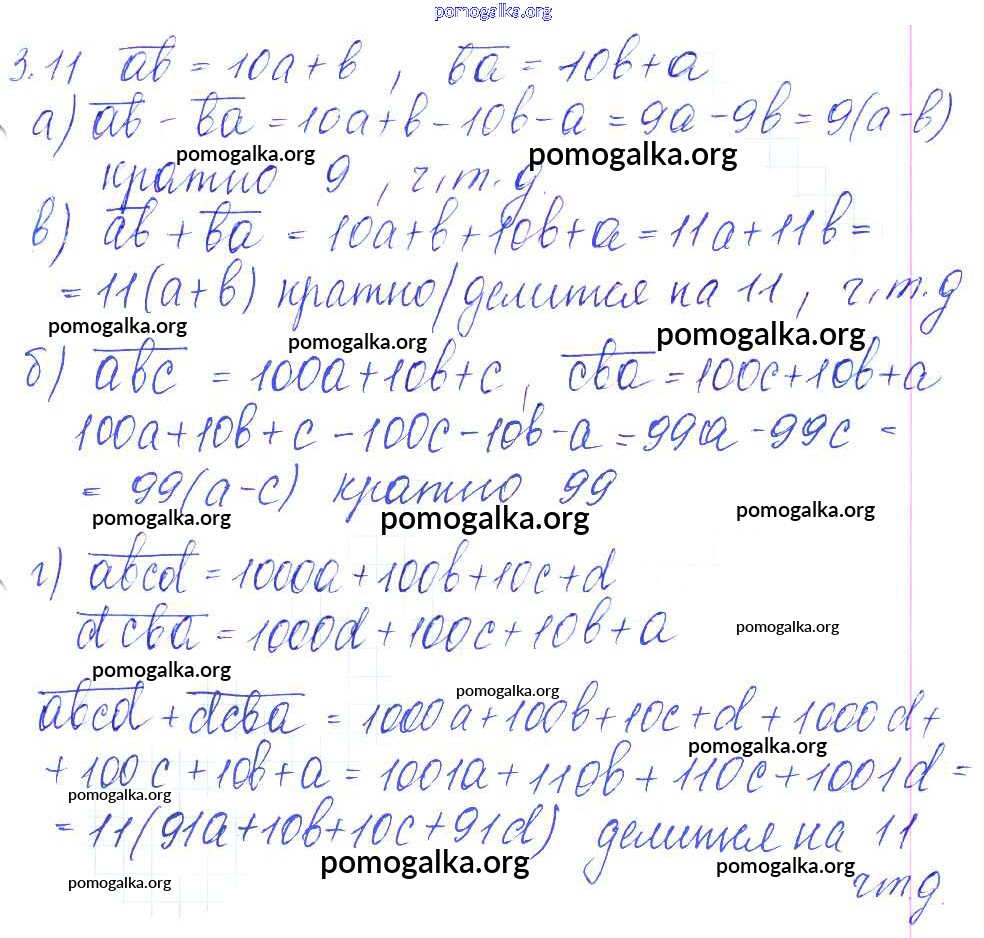 pomogalka.org
3.11 ab = 10a + b , ba = 10b + a
а) ab - ba = 10a + b - 10b - a = 9a - 9b = 9(a - b)
pomogalka.org pomogalka.org
кратно 9 , ч.т.д.
в) ab + ba = 10a + b + 10b + a = 11a + 11b =
= 11(a + b) кратно/делится на 11 , ч.т.д
pomogalka.org pomogalka.org pomogalka.org
б) abc = 100a + 10b + c , cba = 100c + 10b + a
100a + 10b + c - 100c - 10b - a = 99a - 99c =
= 99(a - c) кратно 99
pomogalka.org pomogalka.org pomogalka.org
г) abcd = 1000a + 100b + 10c + d
dcba = 1000d + 100c + 10b + a
pomogalka.org
pomogalka.org pomogalka.org
abcd + dcba = 1000a + 100b + 10c + d + 1000d +
pomogalka.org
+ 100c + 10b + a = 1001a + 110b + 110c + 1001d =
pomogalka.org
= 11(91a + 10b + 10c + 91d) делится на 11
pomogalka.org pomogalka.org pomogalka.org
чтд.